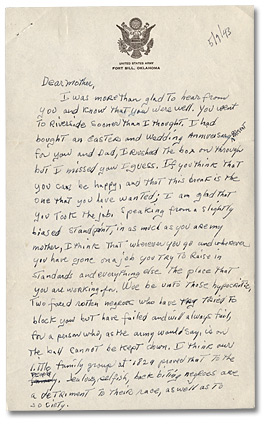 5/9/43
UNITED STATES ARMY
FORT SILL, OKLAHOMA
Dear Mother,
I was more than glad to hear from
you and know that you were well. You went
to Riverside sooner than I thought. I had
bought an Easter and Wedding Anniversary
for you and Dad, I rushed the box on through
but I missed you I guess. If you think that
you can be happy, and that this break is the
one that you have wanted; I am glad that
you took the job. Speaking from a slightly
biased standpoint, in as much as you are my
mother, I think that wherever you go and wherever
you have gone on a job you try to raise in
standards and everything else the place that
you are working for. Woe be unto those hypocrites,
Two faced rotten negroes who have tried to
block you but have failed and will always fail,
for a person who, as the army would say, is on
the ball cannot be kept down. I think our
little family group at 1824 proved that to the
Jealous, selfish, back biting negroes are
a detriment to their race, as well as to
society.